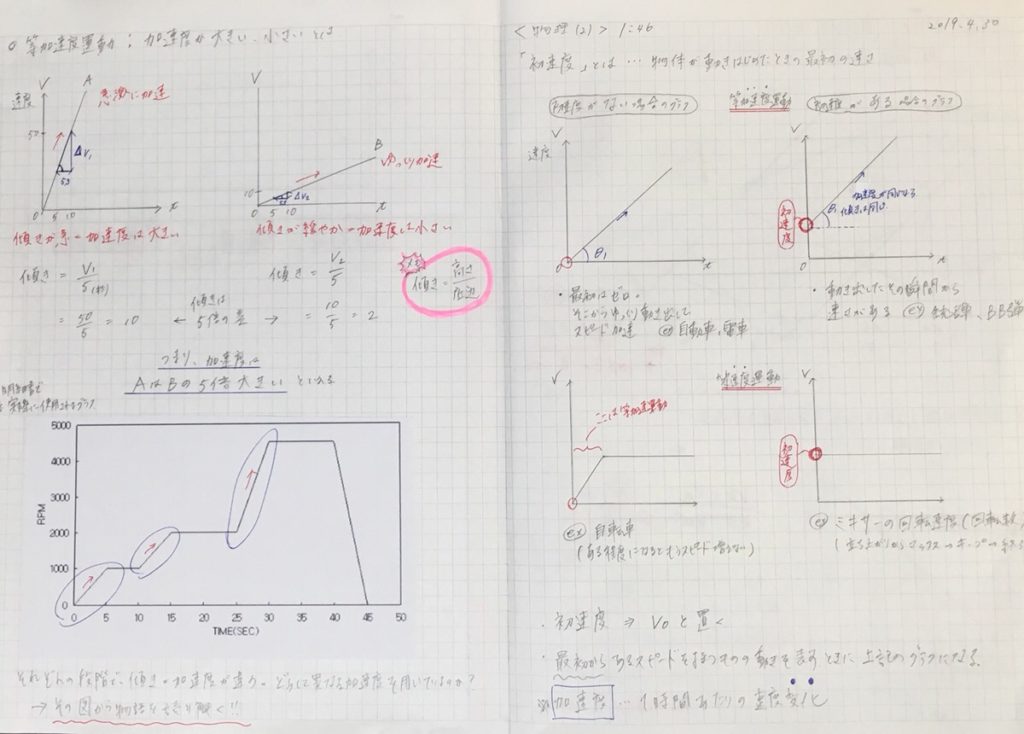 ○ 等加速度運動 : 加速度が大きい、小さいとき
V
A
速度
急激に加速
50
ΔV1
0 5 10
傾きが急→加速度は大きい
V
B
ゆっくり加速
10
ΔV2
0 5 10
傾きが緩やか→加速度は小さい
傾き = V1/5(秒)
= 50/5 = 10
← 傾きは
5倍の差 →
傾き = V2/5
= 10/5 = 2
傾き = 高さ/底辺
つまり、加速度は
AはBの5倍大きい といえる
実際に使用されるグラフ
5000
4000
3000
2000
1000
0
RPM
0 5 10 15 20 25 30 35 40 45 50
TIME(SEC)
それぞれの段階で、傾き→加速度が違う→どうして異なる加速度を用いているのか?
→ その図から物語を読み解く!!
<物理(2)> 1:46
2019.4.30
「初速度」とは … 物体が動きはじめたときの最初の速さ
初速度がない場合のグラフ
等加速度運動
初速度がある場合のグラフ
V
速度
0
θ1
V
初速度
θ1
加速度が同じなら
傾きは同じ
・最初はゼロ。
そこからゆっくり動き出して
スピード加速 ex) 自動車、電車
・動き出したその瞬間から
速さがある
等速度運動
V
ここは等加速運動
V
初速度
ex) 自転車
(ある程度になるともうスピード増えない)
ex) ミキサーの回転速度(回転数)
・初速度 ⇒ V0 と置く
・最初からあるスピードを持つものの動きを表すときに上記のグラフになる。
※ 加速度 … 1時間あたりの速度変化